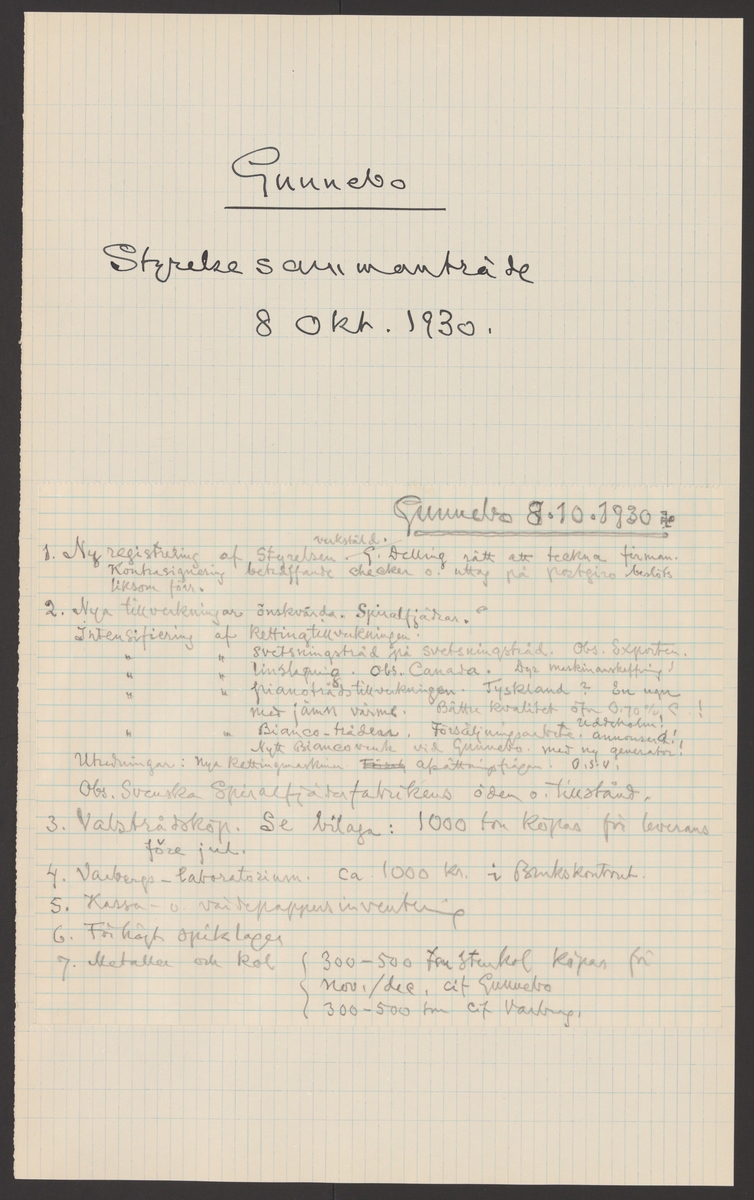 Gunnebo
Styrelsesammanträde
8 Okt. 1930.
Gunnebo 8.10.1930
verkställd.
1. Ny registrering af Styrelsen. G. Delling rätt att teckna firman.
Kontrasignering beträffande checker o. uttag på postgiro beslöts
liksom förr.
2. Nya tillverkningar önskvärda. Spiralfjädrar.
Intensifiering af kettingtillverkningen.
" " svetsningstråd på svetsningstråd. Obs. Exporten.
" " linslagning. Obs. Canada. Dyr maskinanskaffning!
" " pianotrådstillverkningen. Tyskland? En ugn
med jämn värme. Bättre kvalitet öfn 0.70% C !
Uddeholm!
" " Bianco-trådar. Försäljningsarbete + annonsera!
Nytt Biancoverk vid Gunnebo. med ny generator!
Utredningar: Nya kettingmaskiner afsättningsfrågan. O.s.v.
Obs. Svenska Spiralfjäderfabrikens öden o. tillstånd.
3. Valstrådsköp. Se bilaga: 1000 ton köpas för leverans
före jul.
4. Varbergs-laboratorium. ca 1000 kr. i Brukskontoret.
5. Kassa- o. värdepappersinventering
6. För högt spiklager
7. Metaller och kol { 300-500 ton Stenkol köpas för
nov./dec. cif Gunnebo
300-500 ton cif Varberg.